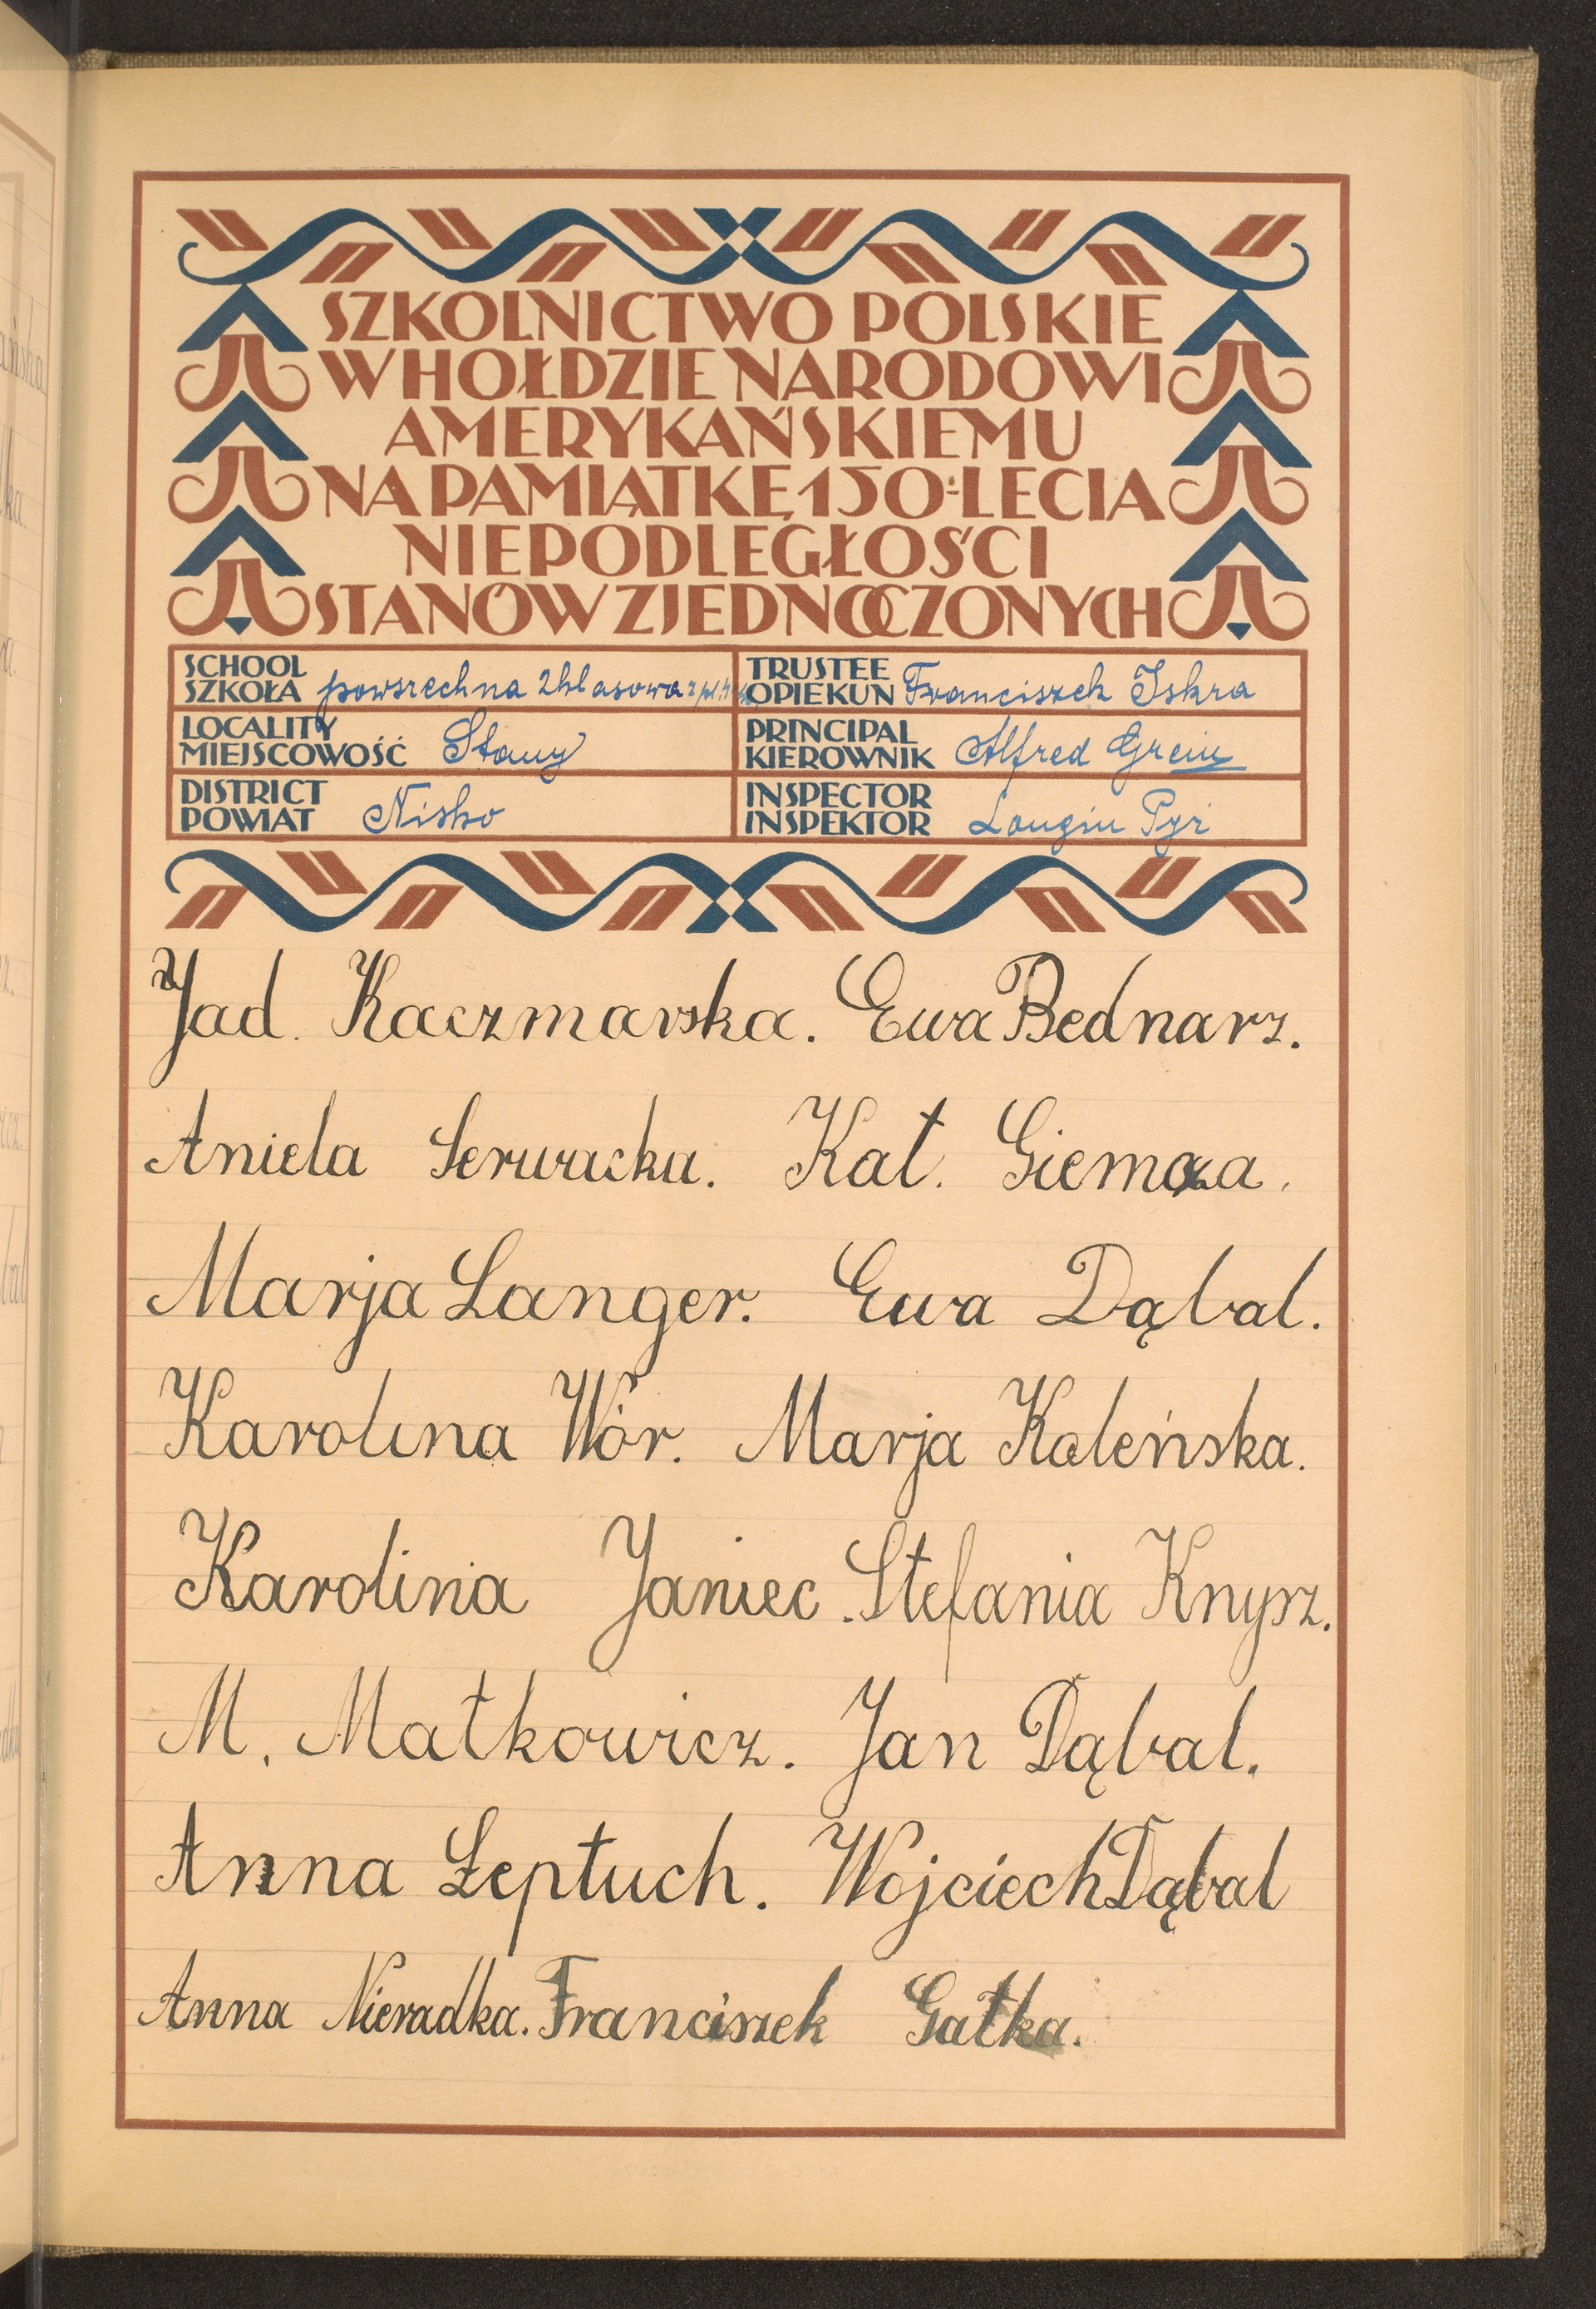 SZKOLNICTWO POLSKIE
W HOŁDZIE NARODOWI
AMERYKAŃSKIEMU
NA PAMIĄTKĘ 150-LECIA
NIEPODLEGŁOŚCI
STANÓW ZJEDNOCZONYCH
SCHOOL
SZKOŁA powszechna 2kl asowa
TRUSTEE
OPIEKUN Franciszek Iskra
LOCALITY
MIEJSCOWOŚĆ Stany
PRINCIPAL
KIEROWNIK Alfred Grein
DISTRICT
POWIAT Nisko
INSPECTOR
INSPEKTOR Longin Pyź
Jad. Kaczmarska. Ewa Bednarz.
Aniela Serwacka. Kat. Giemza.
Marja Langer. Ewa Dąbal.
Karolina Wór. Marja Kaleńska.
Karolina Janiec. Stefania Knysz.
M. Matkowicz. Jan Dąbal.
Anna Łeptuch. Wojciech Dąbal
Anna Nieradka. Franciszek Gatka.